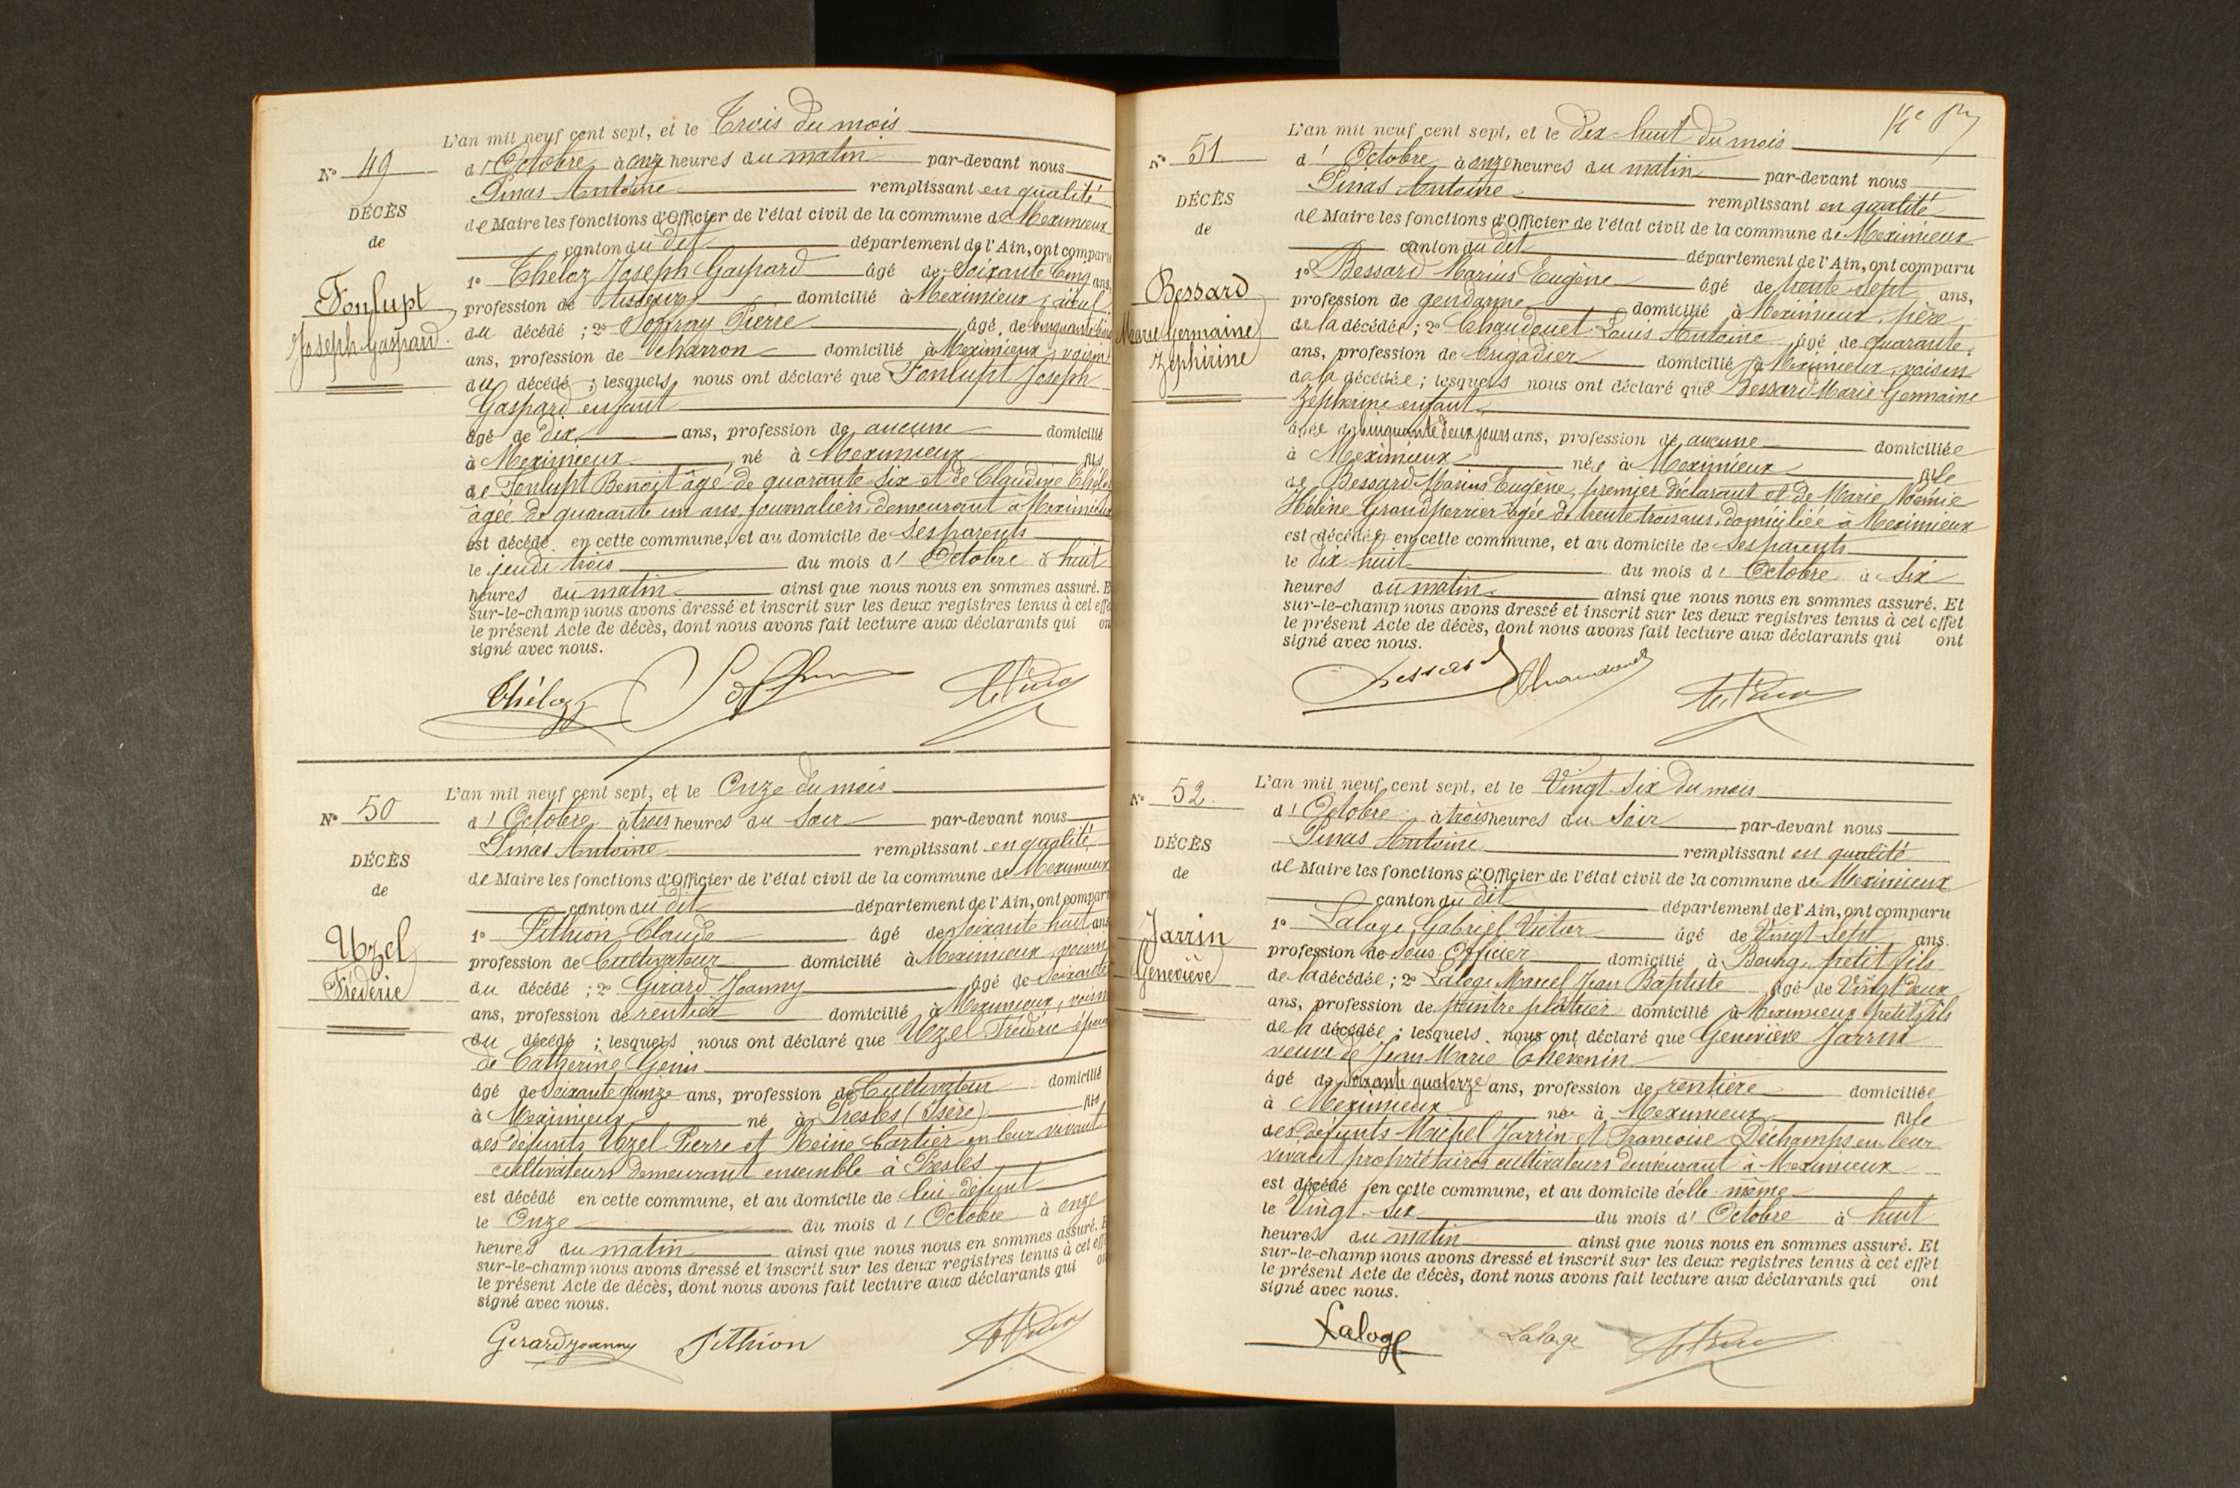 L'an mil neuf cent sept, et le Trois du mois
N° 49
d'Octobre à onze heures du matin par-devant nous
Pinas Antoine remplissant en qualité
DÉCÈS
de Maire les fonctions d'Officier de l'état civil de la commune de Meximieux
de
canton du dit département de l'Ain, ont comparu
1° Theloz Joseph Gaspard âgé de Soixante Cinq ans,
Fonlupt
profession de domicilié à Meximieux, aieul
Joseph Gaspard
du décédé ; 2° Soffray Pierre âgé de
ans, profession de charron domicilié à Meximieux, voisin
du décédé ; lesquels nous ont déclaré que Fonlupt Joseph
Gaspard enfant
âgé de dix ans, profession de aucune domicilié
à Meximieux né à Meximieux fils
de Fonlupt Benoit âgé de quarante six et de Claudine Théloz
âgée de quarante un ans, journaliers, demeurant à Meximieux
est décédé en cette commune, et au domicile de ses parents
le jeudi trois du mois d'Octobre à huit
heures du matin ainsi que nous nous en sommes assuré. E
sur-le-champ nous avons dressé et inscrit sur les deux registres tenus à cet effe
le présent Acte de décès, dont nous avons fait lecture aux déclarants qui on
signé avec nous.
Théloz
L'an mil neuf cent sept, et le Onze du mois
N° 50
d'Octobre à trois heures du soir par-devant nous
Pinas Antoine remplissant en qualité
DÉCÈS
de Maire les fonctions d'Officier de l'état civil de la commune de Meximieux
de
canton du dit département de l'Ain, ont comparu
1° Pithion Claude âgé de soixante huit ans
Uzel
profession de Cultivateur domicilié à Meximieux, voisin
Frédéric
du décédé ; 2° Girard Joanny âgé de soixante
ans, profession de rentier domicilié à Meximieux, voisin
du décédé ; lesquels nous ont déclaré que Uzel Frédéric époux
de Catherine Genis
âgé de soixante quinze ans, profession de Cultivateur domicilié
à Meximieux né à Presles (Isère) fils
des défunts Uzel Pierre et Reine Cartier en leur vivant
cultivateurs demeurant ensemble à Presles
est décédé en cette commune, et au domicile de lui défunt
le Onze du mois d'Octobre à onze
heures du matin ainsi que nous nous en sommes assuré. E
sur-le-champ nous avons dressé et inscrit sur les deux registres tenus à cet eff
le présent Acte de décès, dont nous avons fait lecture aux déclarants qui on
signé avec nous.
Gerard Joanny Pithion
L'an mil neuf cent sept, et le Dix-huit du mois
N° 51
d'Octobre à onze heures du matin par-devant nous
Pinas Antoine remplissant en qualité
DÉCÈS
de Maire les fonctions d'Officier de l'état civil de la commune de Meximieux
de
canton du dit département de l'Ain, ont comparu
1° Bessard Marius Eugène âgé de trente-sept ans,
Bessard
profession de gendarme domicilié à Meximieux, père
Marie Germaine
de la décédée ; 2° Chaudouet Louis Antoine âgé de quarante
Zephirine
ans, profession de brigadier domicilié à Meximieux, voisin
de la décédée ; lesquels nous ont déclaré que Bessard Marie Germaine
Zephirine enfant
âgée de cinquante deux jours ans, profession de aucune domiciliée
à Meximieux née à Meximieux fille
de Bessard Marius Eugène, premier déclarant et de Marie Noémie
Hélène Grandperrier âgée de trente trois ans, domiciliée à Meximieux
est décédée en cette commune, et au domicile de ses parents
le dix huit du mois d'Octobre à six
heures du matin ainsi que nous nous en sommes assuré. Et
sur-le-champ nous avons dressé et inscrit sur les deux registres tenus à cet effet
le présent Acte de décès, dont nous avons fait lecture aux déclarants qui ont
signé avec nous.
Bessard Chaudouet
L'an mil neuf cent sept, et le Vingt-six du mois
N° 52
d'Octobre à trois heures du soir par-devant nous
Pinas Antoine remplissant en qualité
DÉCÈS
de Maire les fonctions d'Officier de l'état civil de la commune de Meximieux
de
canton du dit département de l'Ain, ont comparu
1° Laloge Gabriel Victor âgé de Vingt-sept ans.
Jarrin
profession de sous Officier domicilié à Bourg, petit fils
Geneviève
de la décédée ; 2° Laloge Marcel Jean Baptiste âgé de Vingt deux
ans, profession de peintre plâtrier domicilié à Meximieux petit fils
de la décédée ; lesquels nous ont déclaré que Geneviève Jarrin
veuve de Jean Marie Thévenin
âgé de soixante quatorze ans, profession de rentière domiciliée
à Meximieux née à Meximieux fille
des défunts Michel Jarrin et Françoise Déchamps en leur
vivant propriétaires cultivateurs demeurant à Meximieux
est décédé en cette commune, et au domicile d'elle même
le Vingt-six du mois d'Octobre à huit
heures du matin ainsi que nous nous en sommes assuré. Et
sur-le-champ nous avons dressé et inscrit sur les deux registres tenus à cet effet
le présent Acte de décès, dont nous avons fait lecture aux déclarants qui ont
signé avec nous.
Laloge Laloge